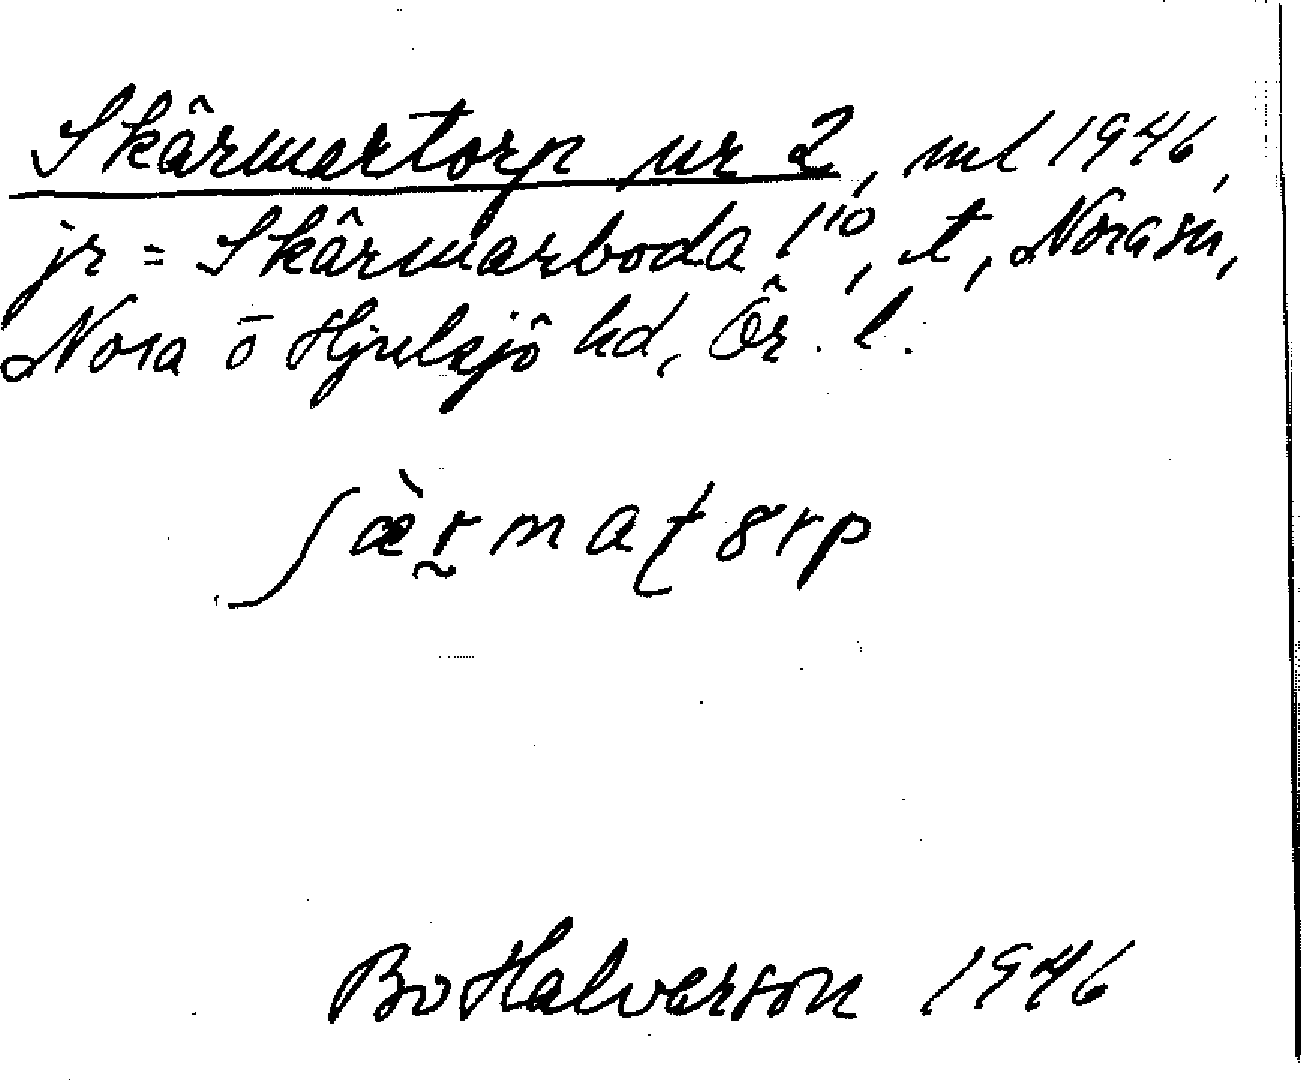 Skärmartorp nr 2, ml 1946,
jr = Skärmarboda 1¹⁰, t, Nora sn,
Nora o Hjulsjö hd, Ör. l.
ʃæ̀r̰maʈ8rp
Bo Halvarson 1946